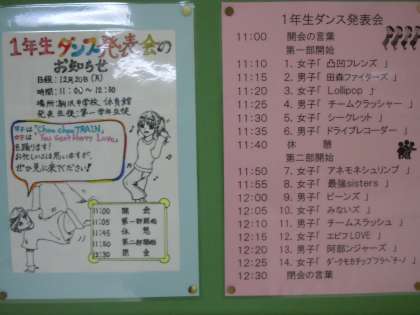 1年生ダンス発表会の
お知らせ
日程：12月20日(月)
時間：11:00～12:30
場所：駒沢中学校、体育館
発表生徒：第一学年生徒
男子は"Choo choo TRAIN"
女子は"You Goet Happy Love"
を踊ります!
お忙しいとは思いますが、
ぜひ見に来てください!
11:00 開会
11:05 第一部開始
11:45 休憩
11:50 第二部開始
12:30 閉会
1年生ダンス発表会
11:00 開会の言葉
第一部開始
11:10 1. 女子「凸凹フレンズ 」
11:15 2. 男子「田森ファイターズ 」
11:20 3. 女子「 Lollipop 」
11:25 4. 男子「 チームクラッシャー 」
11:30 5. 女子「 シークレット 」
11:35 6. 男子「 ドライブレコーダー 」
11:40 休 憩
第二部開始
11:50 7. 女子「 アネモネシュリンプ 」
11:55 8. 女子「 最強sisters 」
12:00 9. 男子「 ビーンズ 」
12:05 10. 女子「 みないズ 」
12:10 11. 男子「 チームスラッシュ 」
12:15 12. 女子「 エビフLOVE 」
12:20 13. 男子「 阿部ンジャーズ 」
12:25 14. 女子「 ダークモカチップフラペチーノ 」
12:30 閉会の言葉